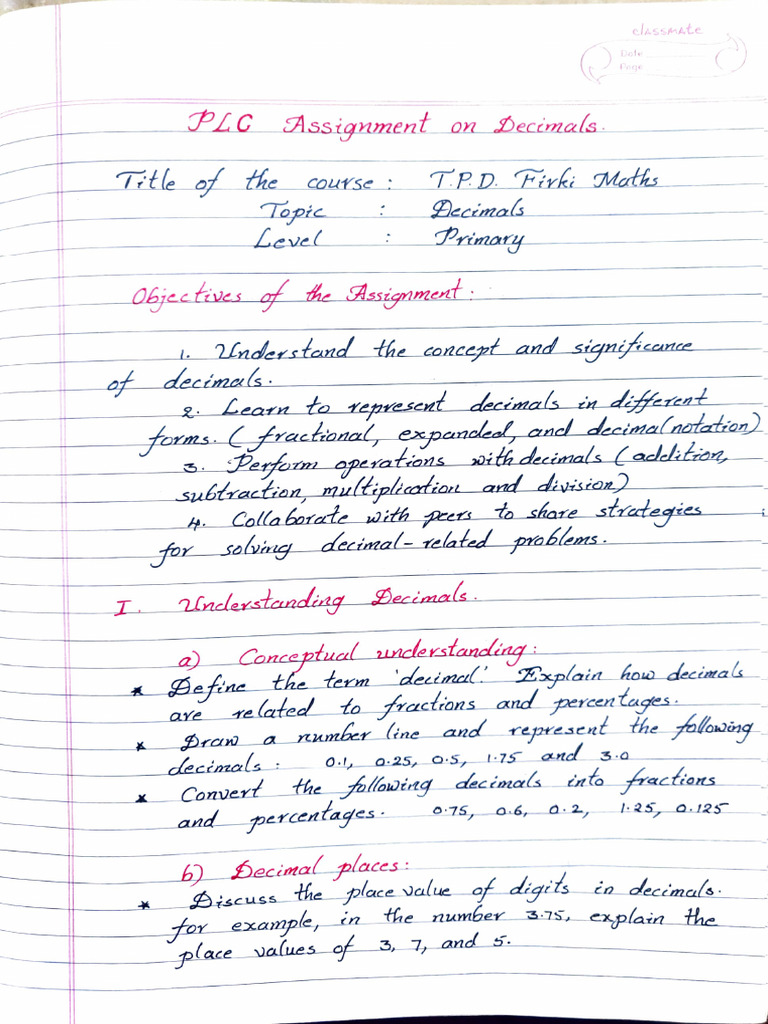 classmate
Date
Page
PLC Assignment on Decimals.
Title of the course : T.P.D. Firki Maths
Topic : Decimals
Level : Primary
Objectives of the Assignment :
1. Understand the concept and significance
of decimals.
2. Learn to represent decimals in different
forms. ( fractional, expanded, and decimal notation)
3. Perform operations with decimals ( addition,
subtraction, multiplication and division)
4. Collaborate with peers to share strategies
for solving decimal-related problems.
I. Understanding Decimals.
a) Conceptual understanding :
* Define the term 'decimal.' Explain how decimals
are related to fractions and percentages.
* Draw a number line and represent the following
decimals : 0.1, 0.25, 0.5, 1.75 and 3.0
* Convert the following decimals into fractions
and percentages. 0.75, 0.6, 0.2, 1.25, 0.125
b) Decimal places :
* Discuss the place value of digits in decimals.
for example, in the number 3.75, explain the
place values of 3, 7, and 5.